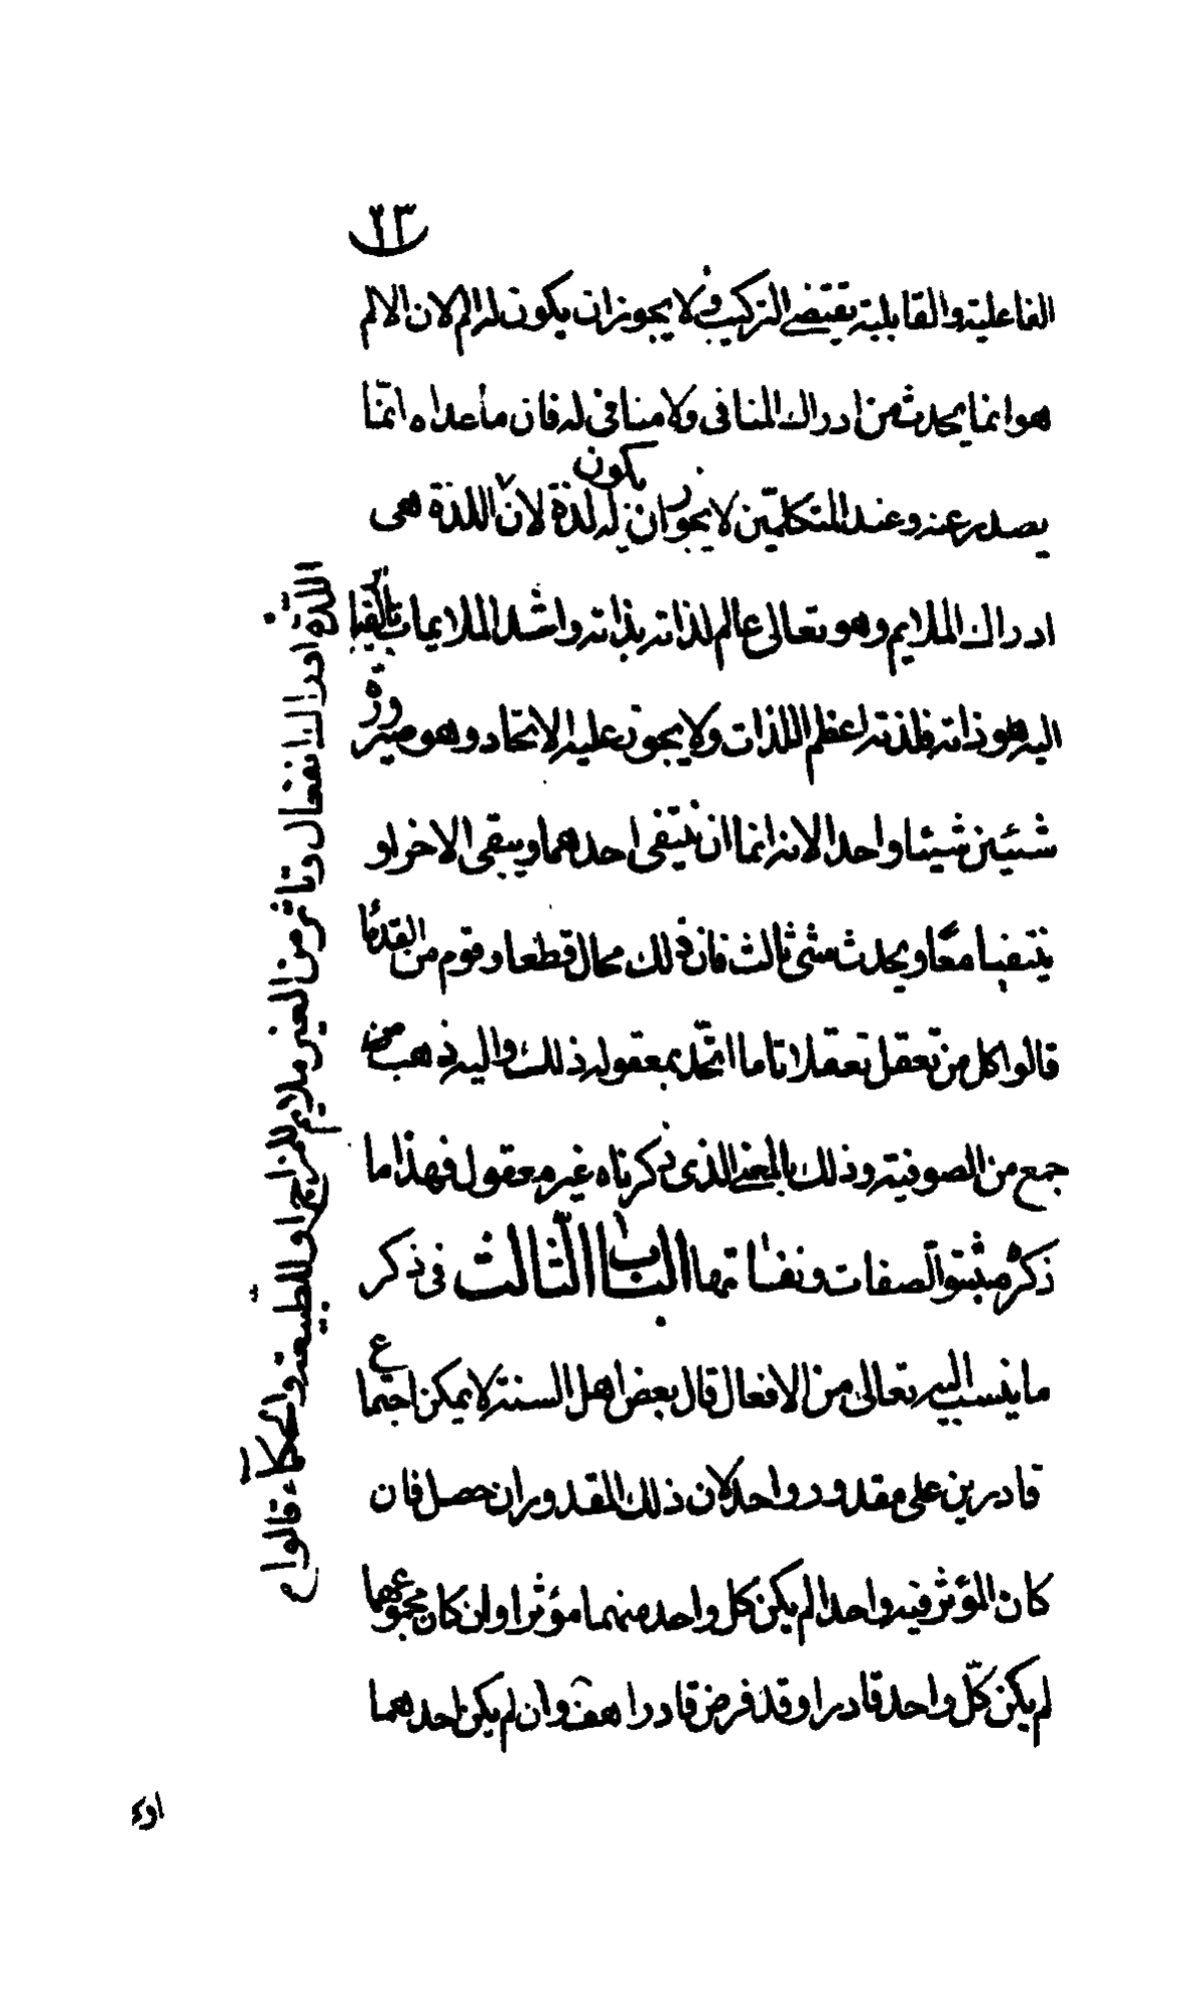 ٢٣
الفاعلية والقابلية يقتضى التركيب ولا يجوز ان يكون له الم لان الالم
هو انما يحدث من ادراك المنافى ولا منافى له فان ما عداه انمّا
يصدر عنه وعند المتكلمّين لا يجوز ان يكون له لذة لانّ اللذة هى
ادراك الملايم وهو تعالى عالم لذاته بذاته واشد الملايمات بالقياس
اليه هو ذاته فلذته اعظم اللذات ولا يجوز عليه الاتحاد وهو صيرورة
شئين شيئا واحدا لانه انما ان ينتفى احدهما ويبقى الاخر او
ينتفيا معًا ويحدث شئ ثالث فان ذلك محال قطعا وقوم من القدمًا
قالوا كل من تعقل تعقلا تاما اتحّد بمعقوله ذلك واليه ذهب
جمع من الصوفية وذلك بالمعنى الذى ذكرناه غير معقول فهذا ما
ذكره مثبتوا الصفات ونفاتها الباب الثّالث فى ذكر
ما ينسب اليه تعالى من الافعال قال بعض اهل السنة لا يمكن اجتماع
قادرين على مقدور واحد لان ذلك المقدور ان حصل فان
كان المؤثر فيه واحدا لم يكن كل واحد منهما مؤثرا وان كان مجموعهما
لم يكن كلّ واحد قادرا وقد فرض قادرا هف وان لم يكن احدهما
اللّذة ادراك انفعال وتاثر من الغير ملايم للمزاج او للطّبيعة والحكمآء قالوا